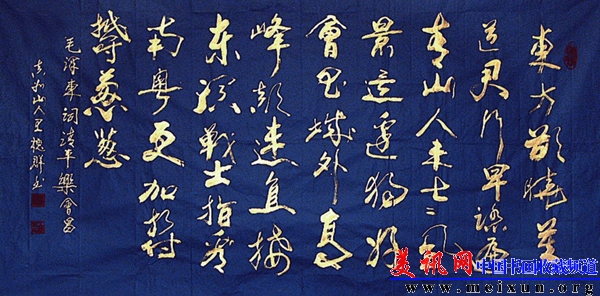 東方欲曉莫
道君行早踏遍
青山人未老風
景這邊獨好
會昌城外高
峰顛連直接
東溟戰士指看
南粵更加郁
鬱葱葱
毛澤東詞清平樂會昌
山人
美讯网
中国书画收藏频道
www.meixun.org